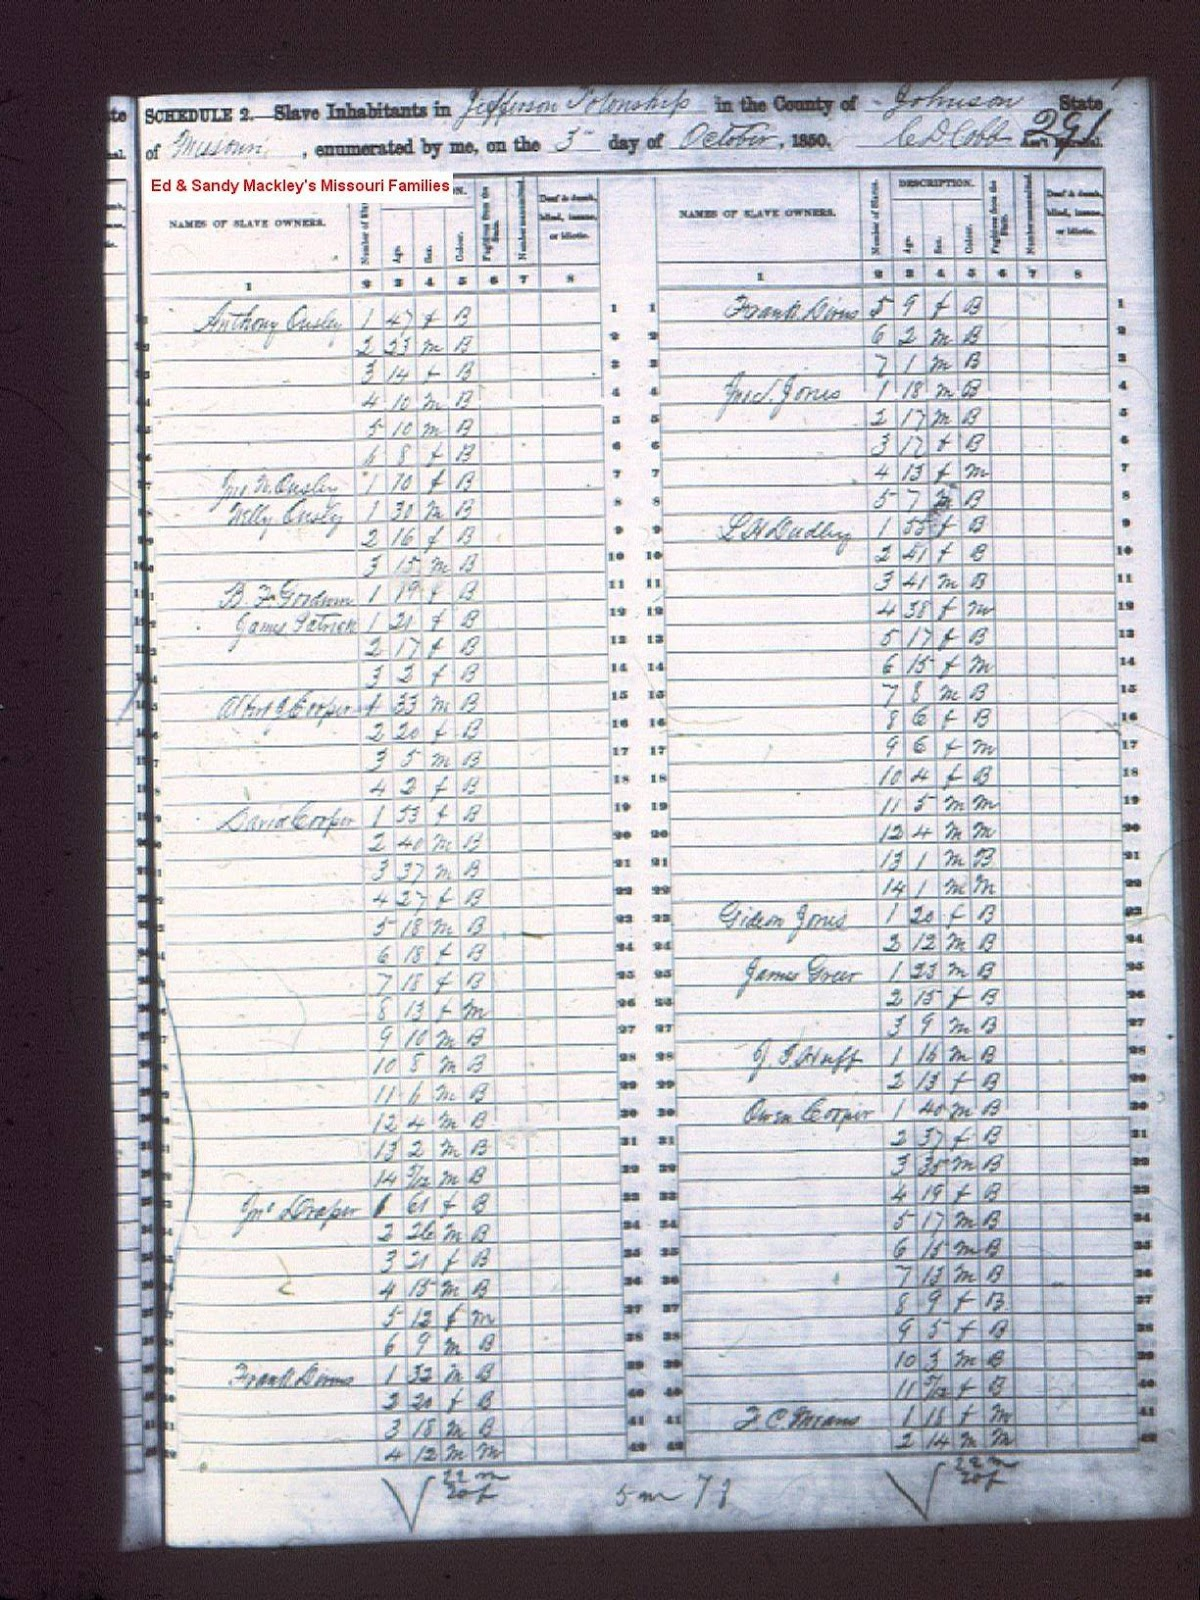 SCHEDULE 2.—Slave Inhabitants in Jefferson Township in the County of Johnson State
of Missouri, enumerated by me, on the 3d day of October, 1850. C D Cobb Ass't Marshal.
291
Ed & Sandy Mackley's Missouri Families
NAMES OF SLAVE OWNERS. Age. Sex. Colour. Fugitives from the State. Number manumitted. Deaf & dumb, blind, insane, or idiotic.
1 2 3 4 5 6 7 8
1 Anthony Ousley 1 47 f B
2 2 23 m B
3 3 14 f B
4 4 10 m B
5 5 10 m B
6 6 8 f B
7 Jno N. Ousley 1 70 f B
8 Willy Ousley 1 30 m B
9 2 16 f B
10 3 15 m B
11 B. F. Goodwin 1 19 f B
12 James Patrick 1 21 f B
13 2 17 f B
14 3 2 f B
15 Cooper 1 33 m B
16 2 20 f B
17 3 5 m B
18 4 2 f B
19 David Cooper 1 53 f B
20 2 40 m B
21 3 37 m B
22 4 27 f B
23 5 18 m B
24 6 18 f B
25 7 18 f B
26 8 13 f m
27 9 10 m B
28 10 8 m B
29 11 6 m B
30 12 4 m B
31 13 2 m B
32 14 5/12 m B
33 Jno Draper 1 61 f B
34 2 26 m B
35 3 21 f B
36 4 15 m B
37 5 12 f m
38 6 9 m B
39 Frank Divers 1 32 m B
40 2 20 f B
41 3 18 m B
42 4 12 m m
22 m
20 f
NAMES OF SLAVE OWNERS. Number of Slaves. DESCRIPTION. Age. Sex. Colour. Fugitives from the State. Number manumitted. Deaf & dumb, blind, insane, or idiotic.
1 2 3 4 5 6 7 8
1 Frank Divers 5 9 f B
2 6 2 m B
3 7 1 m B
4 Jones 1 18 m B
5 2 17 m B
6 3 17 f B
7 4 13 f m
8 5 7 m B
9 L H Dudley 1 55 f B
10 2 41 f B
11 3 41 m B
12 4 38 f m
13 5 17 f B
14 6 15 f m
15 7 8 m B
16 8 6 f B
17 9 6 f m
18 10 4 f B
19 11 5 m m
20 12 4 m m
21 13 1 m B
22 14 1 m m
23 Gideon Jones 1 20 f B
24 2 12 m B
25 James Greer 1 23 m B
26 2 15 f B
27 3 9 m B
28 J. F. Huff 1 16 m B
29 2 13 f B
30 Owen Cooper 1 40 m B
31 2 37 f B
32 3 35 m B
33 4 19 f B
34 5 17 m B
35 6 15 m B
36 7 13 m B
37 8 9 f B
38 9 5 f B
39 10 3 m B
40 11 5/12 f B
41 F. C. Means 1 18 f m
42 2 14 m m
22 m
20 f
5 m 7 f